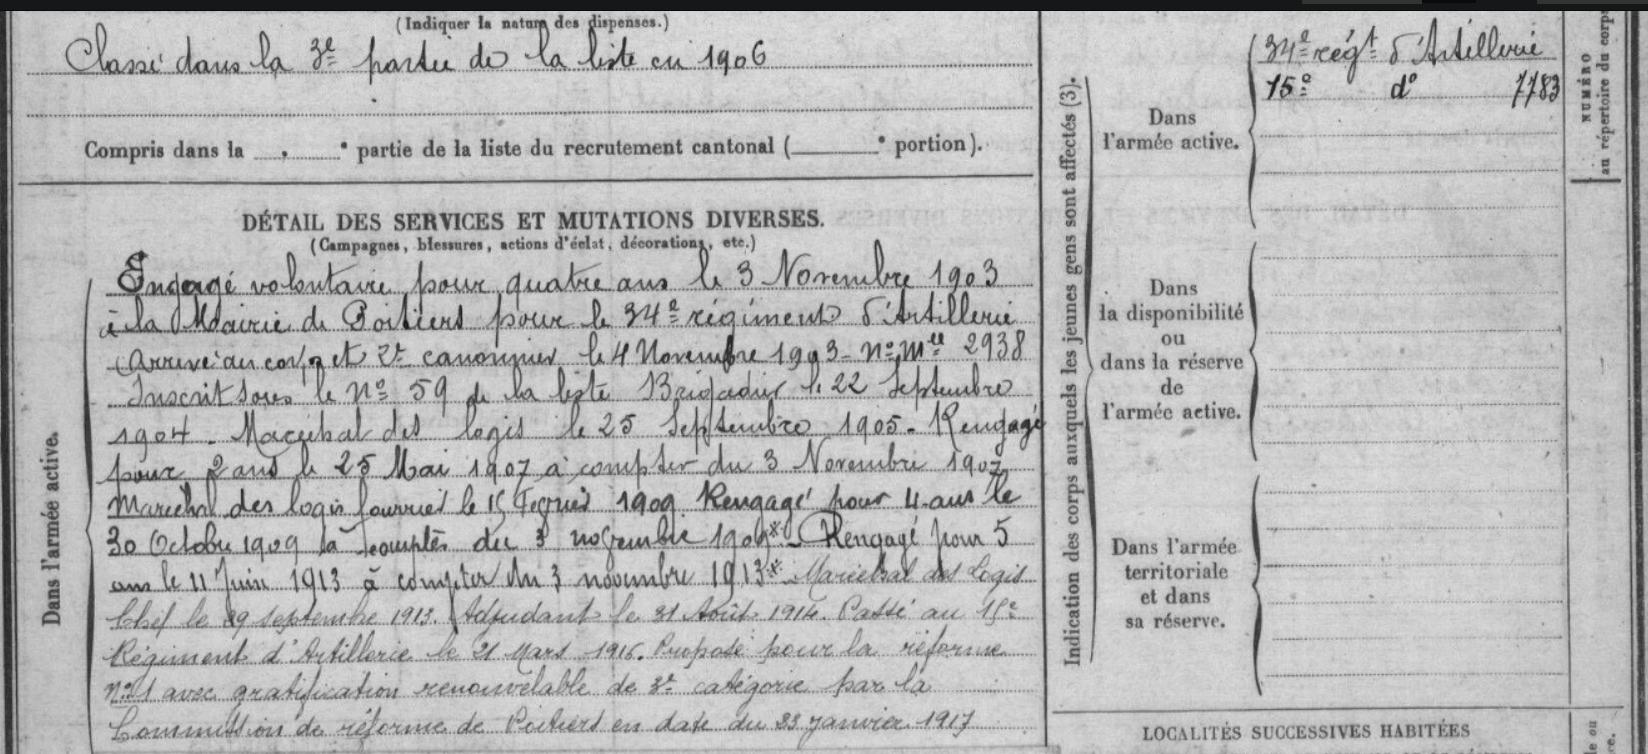 (Indiquer la nature des dispenses.)
Classé dans la 3e partie de la liste en 1906
Compris dans la e partie de la liste du recrutement cantonal ( e portion).
DÉTAIL DES SERVICES ET MUTATIONS DIVERSES.
(Campagnes, blessures, actions d'éclat, décorations, etc.)
Dans l'armée active.
Engagé volontaire pour quatre ans le 3 Novembre 1903
à la Mairie de Poitiers pour le 34e régiment d'Artillerie
Arrivé au corps et 2e canonnier le 4 Novembre 1903 - No Mle 2938
Inscrit sous le No 59 de la liste Brigadier le 22 Septembre
1904 - Maréchal des logis le 25 Septembre 1905 - Rengagé
pour 2 ans le 25 Mai 1907 à compter du 3 Novembre 1907
Maréchal des logis fourrier le 15 Février 1909 Rengagé pour 4 ans le
30 Octobre 1909 à compter du 3 novembre 1909* - Rengagé pour 5
ans le 11 Juin 1913 à compter du 3 novembre 1913* Maréchal des Logis
Chef le 29 septembre 1913. Adjudant le 31 Août 1914. Passé au 15e
Régiment d'Artillerie le 21 Mars 1916. Proposé pour la réforme
No 1 avec gratification renouvelable de 3e catégorie par la
Commission de réforme de Poitiers en date du 23 janvier 1917
Indication des corps auxquels les jeunes gens sont affectés (3).
Dans
l'armée active.
34e régt d'Artillerie
15e do 7783
Dans
la disponibilité
ou
dans la réserve
de
l'armée active.
Dans l'armée
territoriale
et dans
sa réserve.
NUMÉRO
au répertoire du corps
LOCALITÉS SUCCESSIVES HABITÉES